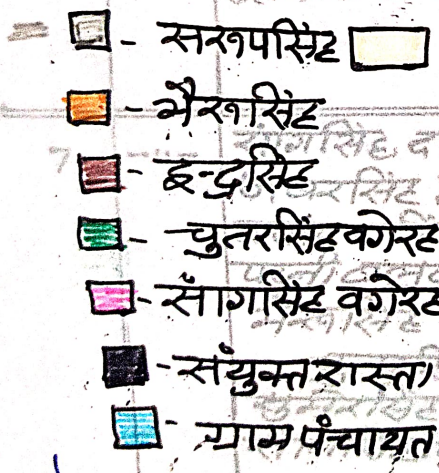 - सरुपसिंह
- भैरुसिंह
- इन्द्रसिंह
- चुतरसिंह वगेरह
- सांगसिंह वगेरह
- संयुक्त रास्ता
- ग्राम पंचायत